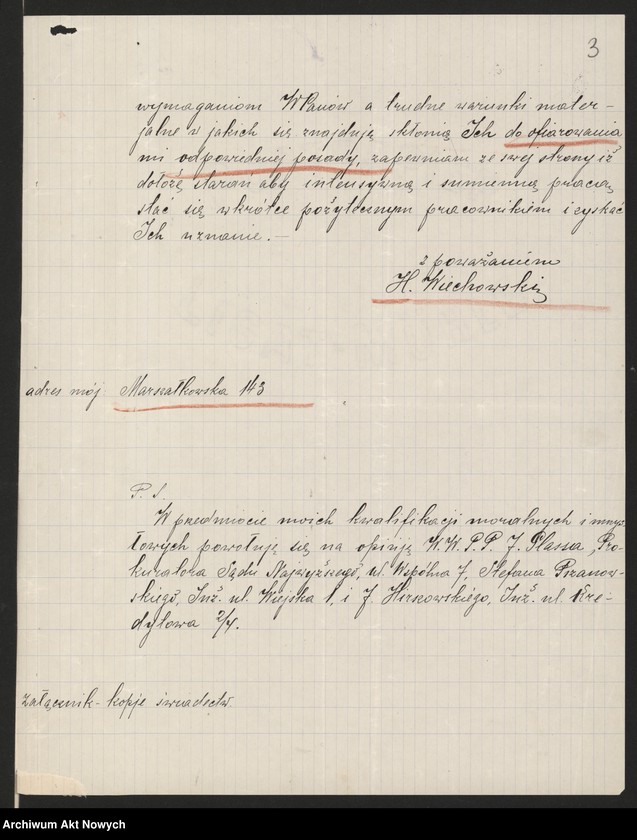 3
wymaganiom WPanów a trudne warunki mater-
jalne w jakich się znajduję skłonią Ich do ofiarowania
mi odpowiedniej posady, zapewniam ze swej strony iż
dołożę starań aby intensywną i sumienną pracą
stać się wkrótce pożytecznym pracownikiem i zyskać
Ich uznanie. —
z poważaniem
H. Wiechowski
adres mój: Marszałkowska 143
P. S.
W przedmiocie moich kwalifikacji moralnych i umys-
łowych powołuję się na opinję W.W. P.P. J. Glassa, Pro-
kuratora Sądu Najwyższego, ul. Wspólna 7, Stefana
skiego, Inż. ul. Wiejska 1, i J. Hirszowskiego, Inż. ul. Kre-
dytowa 2/4.
załącznik - kopje świadectw.
Archiwum Akt Nowych